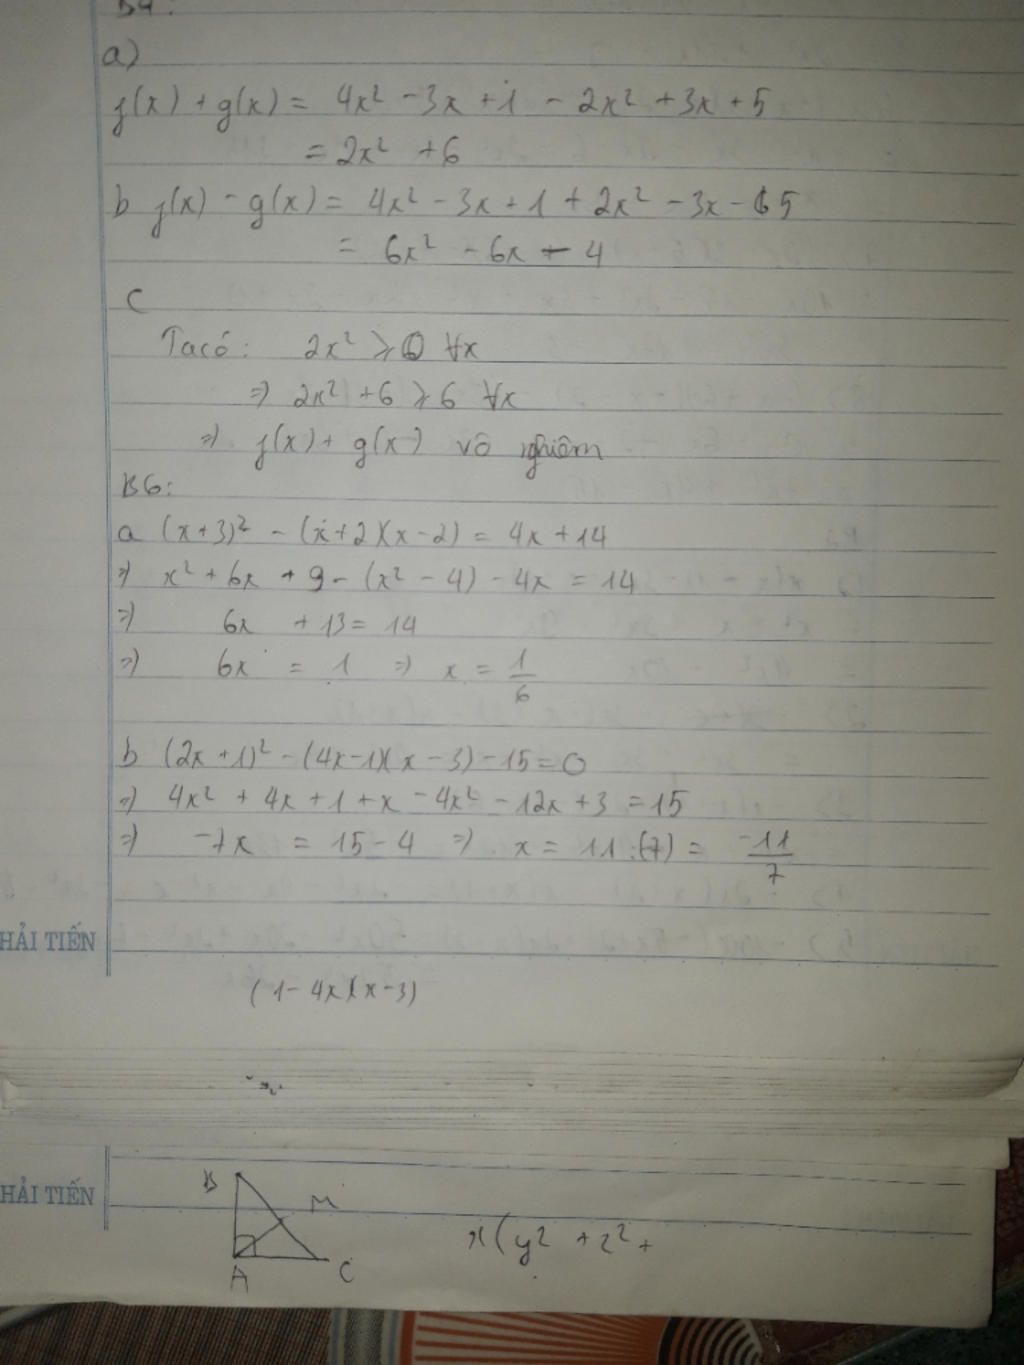 B4:
a)
f(x) + g(x) = 4x² - 3x + 1 - 2x² + 3x + 5
= 2x² + 6
b f(x) - g(x) = 4x² - 3x + 1 + 2x² - 3x - 5
= 6x² - 6x - 4
c
Ta có: 2x² ⩾ 0 ∀x
=> 2x² + 6 ⩾ 6 ∀x
=> f(x) + g(x) vô nghiệm
B6:
a (x+3)² - (x+2)(x-2) = 4x + 14
=> x² + 6x + 9 - (x² - 4) - 4x = 14
=> 6x + 13 = 14
=> 6x = 1 => x = 1/6
b (2x+1)² - (4x-1)(x-3) - 15 = 0
=> 4x² + 4x + 1 + x - 4x² - 12x + 3 = 15
=> -7x = 15 - 4 => x = 11 : (-7) = -11/7
HẢI TIẾN
(1 - 4x)(x - 3)
HẢI TIẾN
B
M
A
C
x(y² + z² +